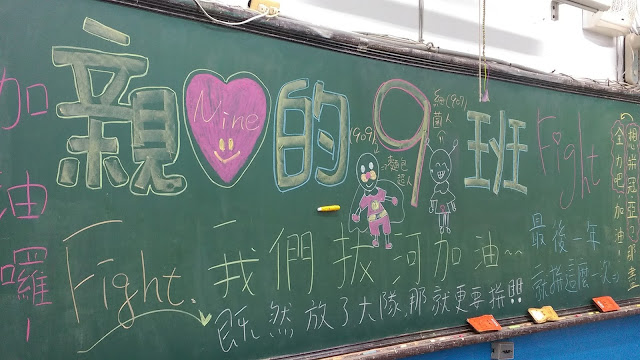 加油囉~
親 Nine 的 9 班
(909)
=>麵包超人
細(907)菌人
Fight
Fight.
我們拔河加油~~
既然放了大隊,那就更要拼!!!
最後一年
就拼這麼一次
全力吧!加油!